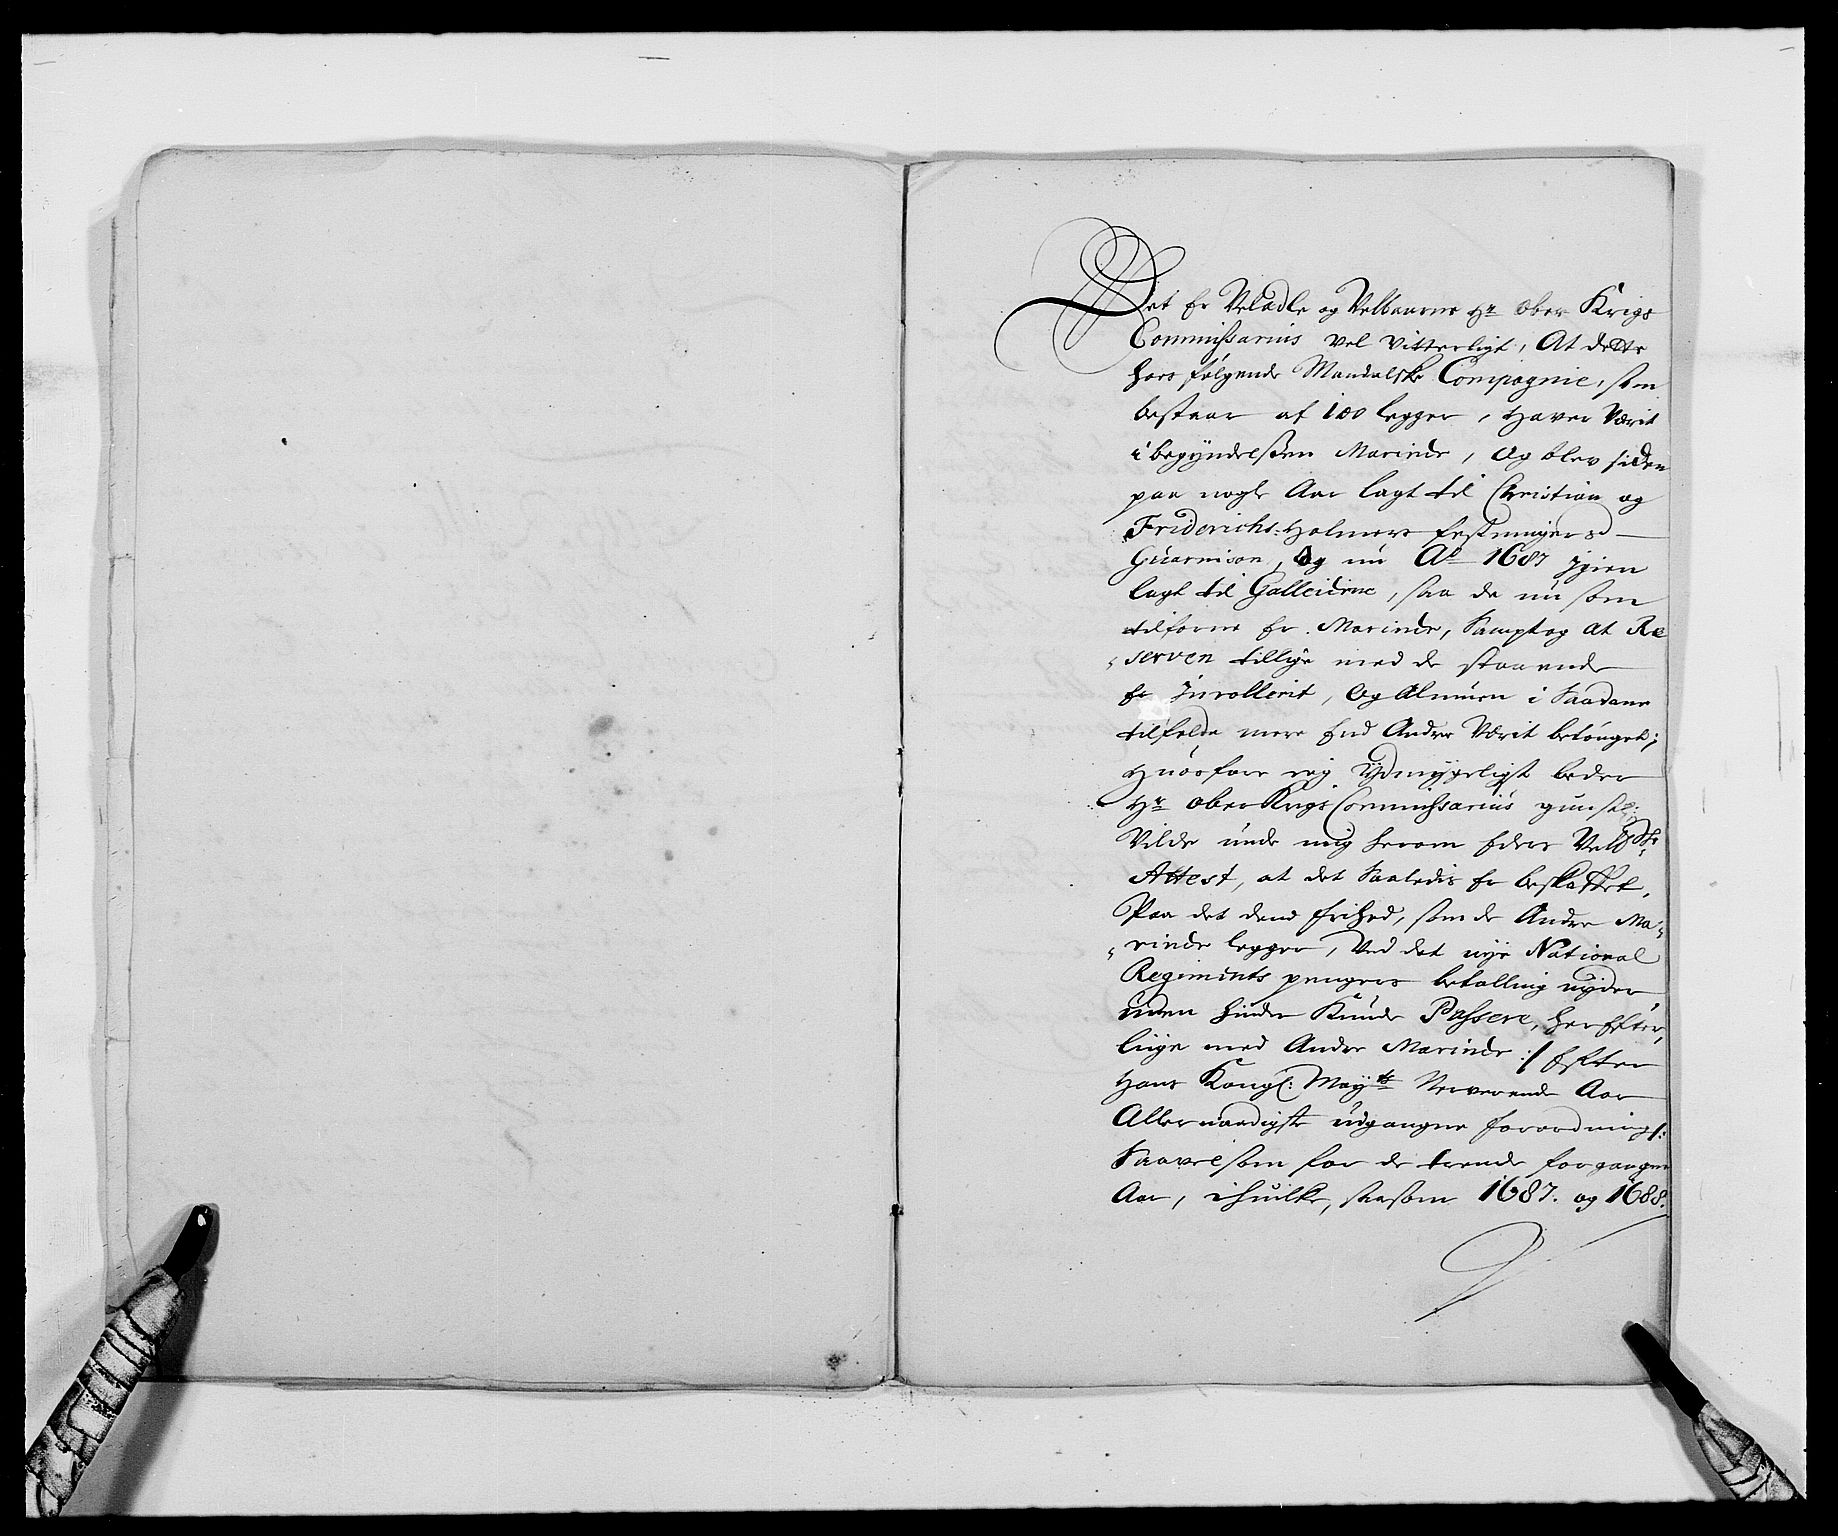 Det Er Veladle og Velbaarne Hr Ober Krigs
Commissarius vel vitterligt, At dette
hoes følgende Mandalske Compagnie, som
bestaar af 100 legger, Haver Værit
i begyndelßen Marinde, Og blev siden
paa nogle Aar lagt til Christian og
Friderichs-Holmers festningers
Guarnison, Og nu Ao 1687 jgien
lagt til Galleierne, saa de nu som
tilforne Er Marinde, Sampt og at Re
serven tillige med de staaende
Er Jnrollerit, Og Almuen i Saadane
tilfelde mere End Andre Værit betynget;
Huorfore jeg Ydmygeligst beder
Hr Ober Krigs Commissarius gunstl:
Vilde unde mig herom Eders
Attest, at det Saaledis Er beskaffet,
Paa det dend frihed, som de Andre Ma-
rinde legger, Ved det nye National
Regiments penges betalling nyder
uden hinder Kunde Passere, her Efter,
lige med Andre Marinde :/ Efter
Hans Kongl: Mayts Nerverende Aar
Allernaadigste udgangne forordning /:
Saavelsom for de trende forgangne
Aar, ihuilke, saasom 1687. og 1688.